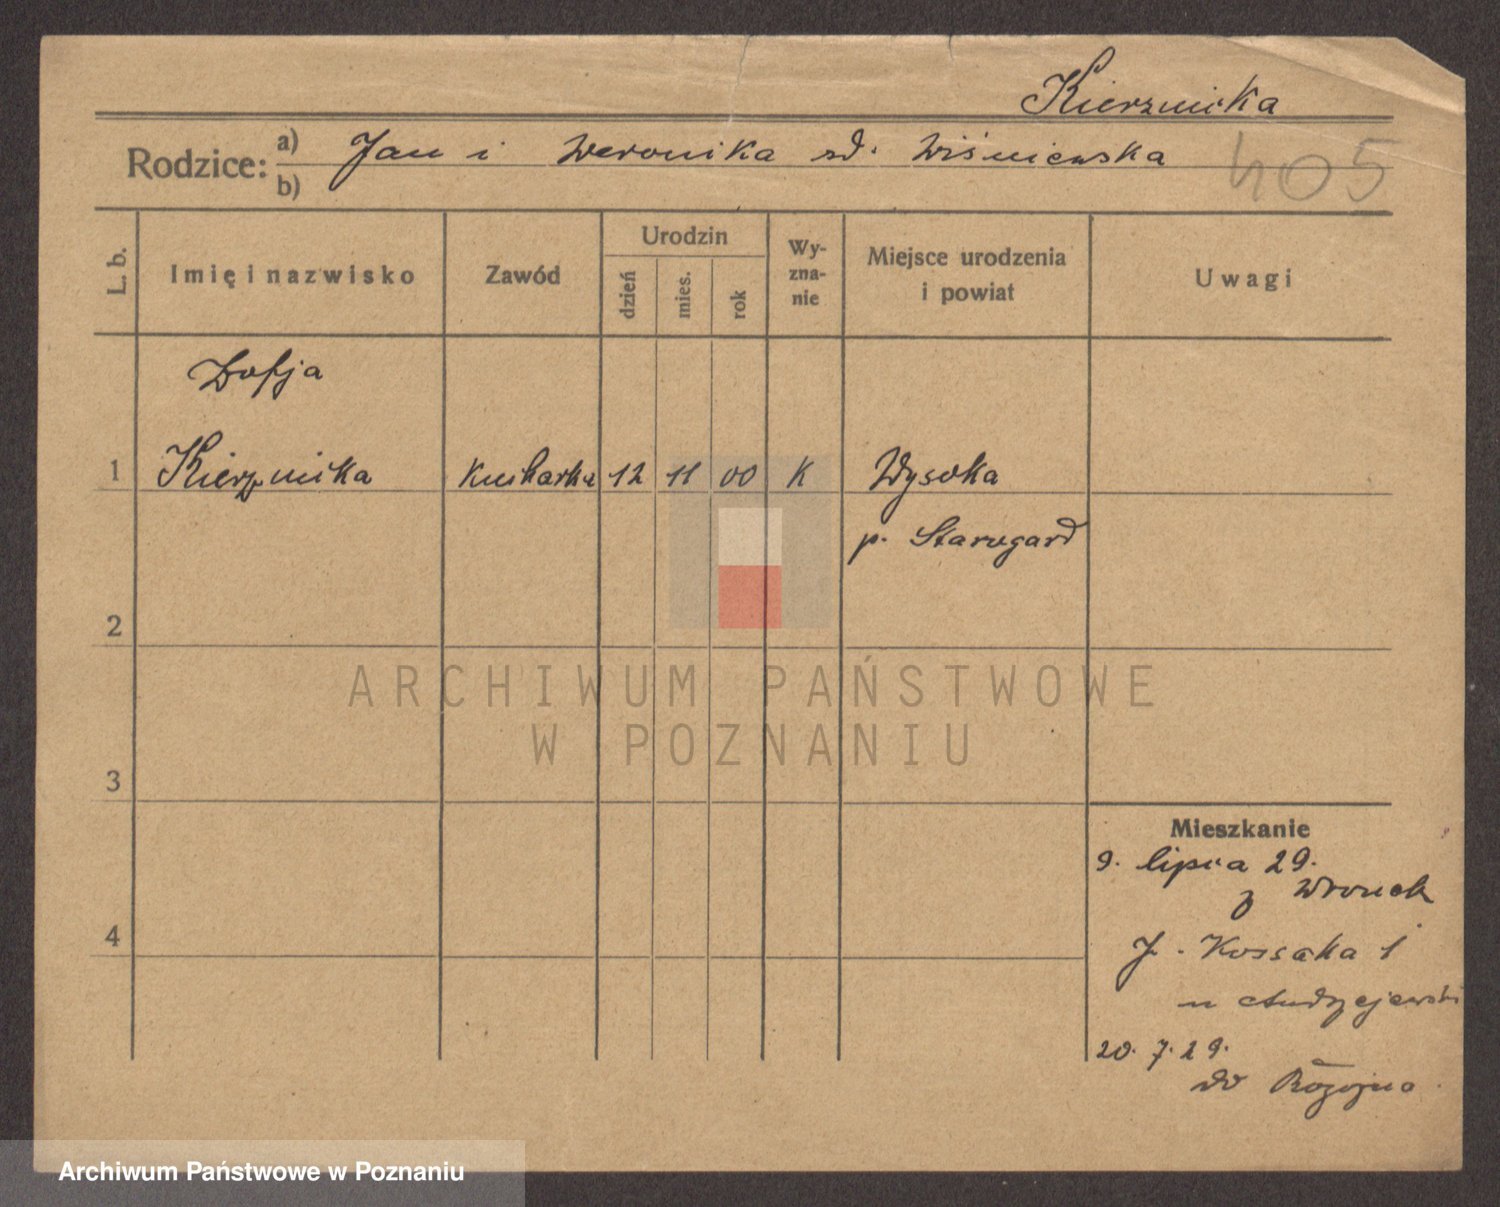 Kierznicka
Rodzice:
a) Jan i Weronika zd. Wiśniewska
b)
405
L. b.
Imię i nazwisko
Zawód
Urodzin
dzień
mies.
rok
Wy-
zna-
nie
Miejsce urodzenia
i powiat
Uwagi
Zofja
1 Kierznicka kucharka 12 11 00 K Wysoka
p. Starogard
2
3
4
Mieszkanie
9. lipca 29.
z Wronek
J. Kossaka 1
u Andrzejewski
20. 7. 29.
do
ARCHIWUM PAŃSTWOWE
W POZNANIU
Archiwum Państwowe w Poznaniu